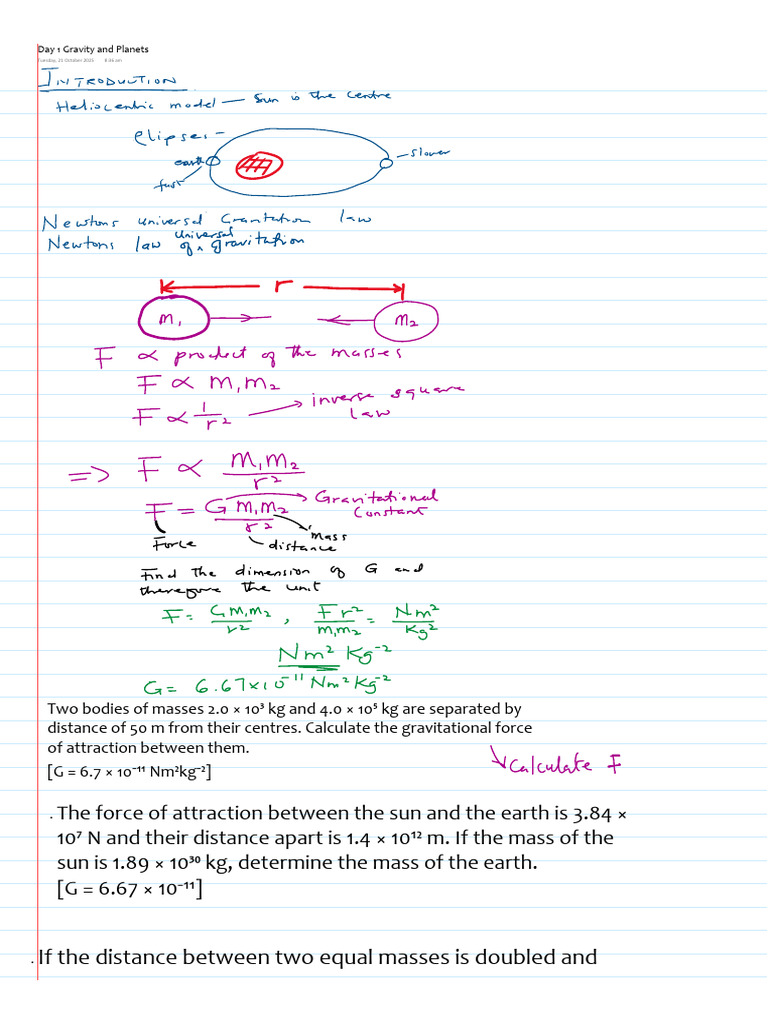 Day 1 Gravity and Planets
Tuesday, 21 October 2025 8:36 am
INTRODUCTION
Heliocentric model — Sun is the centre
elipses –
earth
slower
fast
Newtons universal Gravitation law
Newtons law of universal gravitation
r
m₁ m₂
F ∝ product of the masses
F ∝ m₁m₂
F ∝ 1/r² → inverse square law
=> F ∝ m₁m₂/r²
F = G m₁m₂/r² → Gravitational Constant
Mass
Force distance
Find the dimension of G and
therefore the unit
F = Gm₁m₂/r² , Fr²/m₁m₂ = Nm²/Kg²
Nm² Kg⁻²
G = 6.67×10⁻¹¹ Nm²Kg⁻²
Two bodies of masses 2.0 × 10³ kg and 4.0 × 10⁵ kg are separated by
distance of 50 m from their centres. Calculate the gravitational force
of attraction between them.
[G = 6.7 × 10⁻¹¹ Nm²kg⁻²]
Calculate F
. The force of attraction between the sun and the earth is 3.84 ×
10⁷ N and their distance apart is 1.4 × 10¹² m. If the mass of the
sun is 1.89 × 10³⁰ kg, determine the mass of the earth.
[G = 6.67 × 10⁻¹¹]
. If the distance between two equal masses is doubled and